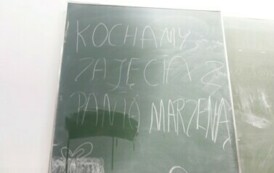 KOCHAMY
ZAJĘCIA Z
PANIĄ MARZENĄ